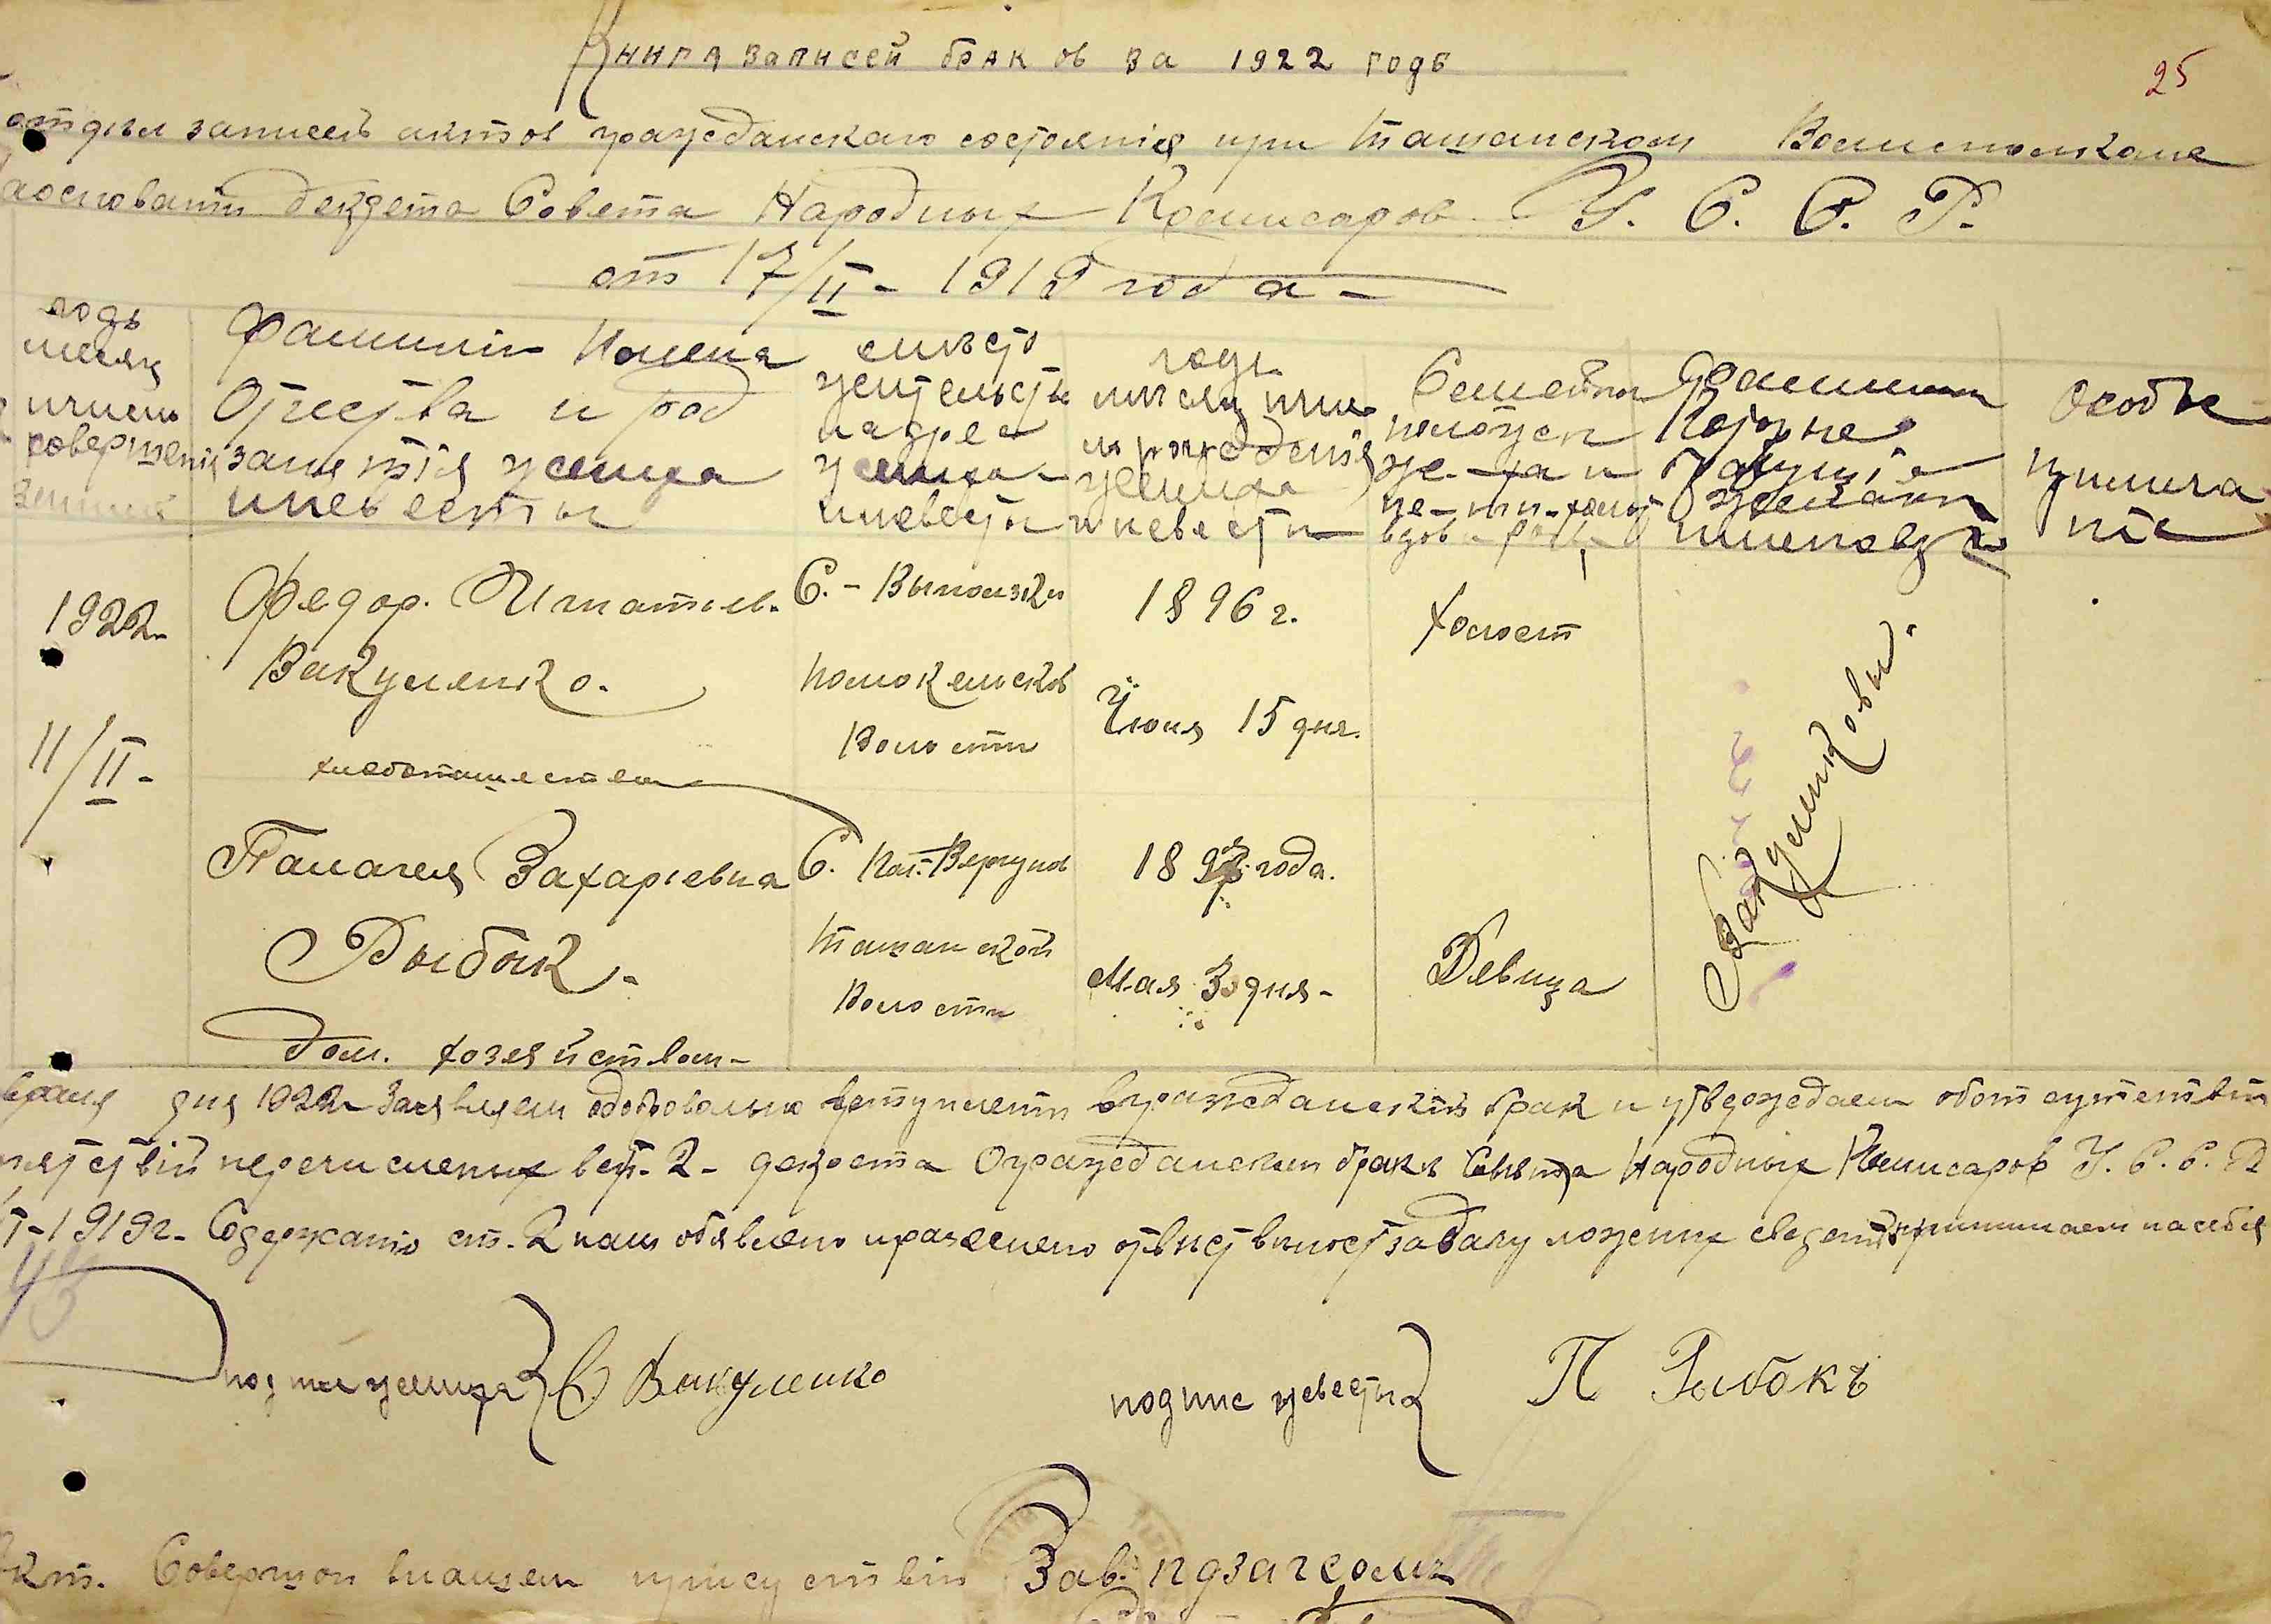 Книга записей браков за 1922 годъ
25
отдел записей актов гражданскаго состояния при Ташанском Волисполкоме
на основании декрета Совета Народных Комисаров У. С. С. Р.
от 17/II - 1919 года -
годъ
месяц
и число
совершения
Фамилии Имена
Отчества и род
занятія жениха
и невесты
место
жительств
и адрес
жениха
и невесты
годъ
месяц и чис
ло рождения
жениха
и невесты
Семейное
положен
же-ха и
не-ты холост
вдов
Фамилии
Которые
желают
именоваться
Особые
примеча
ния
1922
11/II-
Федор. Игнатьев.
Вакуленко.
хлебопашеством
С. - Выползки
Помокельсков
Волости
1896 г.
Июня 15 дня.
холост
Вакуленковы.
Палагея Захарьевна
Рыбак.
дом. хозяйством-
С. Пол.-Вергуны
Ташанской
Волости
189 года.
Мая 30 дня-
Девица
дня 1922 Заявляем одобровольно вступлении в гражданский брак и утверждаем об отсутствии
препятствий перечисленых в ст. 2 - декрета О гражданском браке Совета Народных Комисаров У. С. С. Р
1919г. Содержание ст. 2 нам обявлено и разяснено ответственост за дачу ложных сведений принимаем на себя
подпис жениха Ф Вакуленко
подпис невесты П Рыбокъ
Акт. Совершон в нашем присуствіи Зав. подзагсом